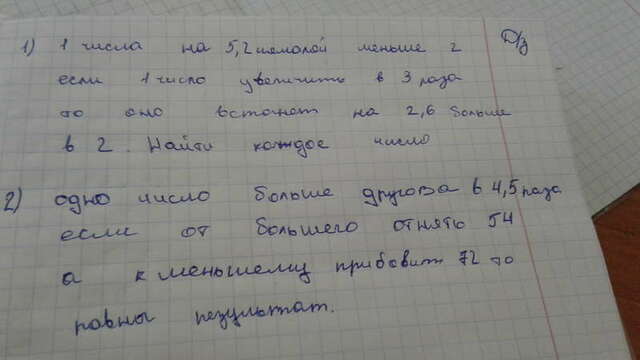 Д/з
1) 1 числа на 5,2 меньше 2
если 1 число увеличить в 3 раза
то оно встонет на 2,6 больше
в 2. Найти каждое число
2) одно число больше другова в 4,5 раза
если от большего отнято 54
а к меньшему прибовит 72 то
равны результат.